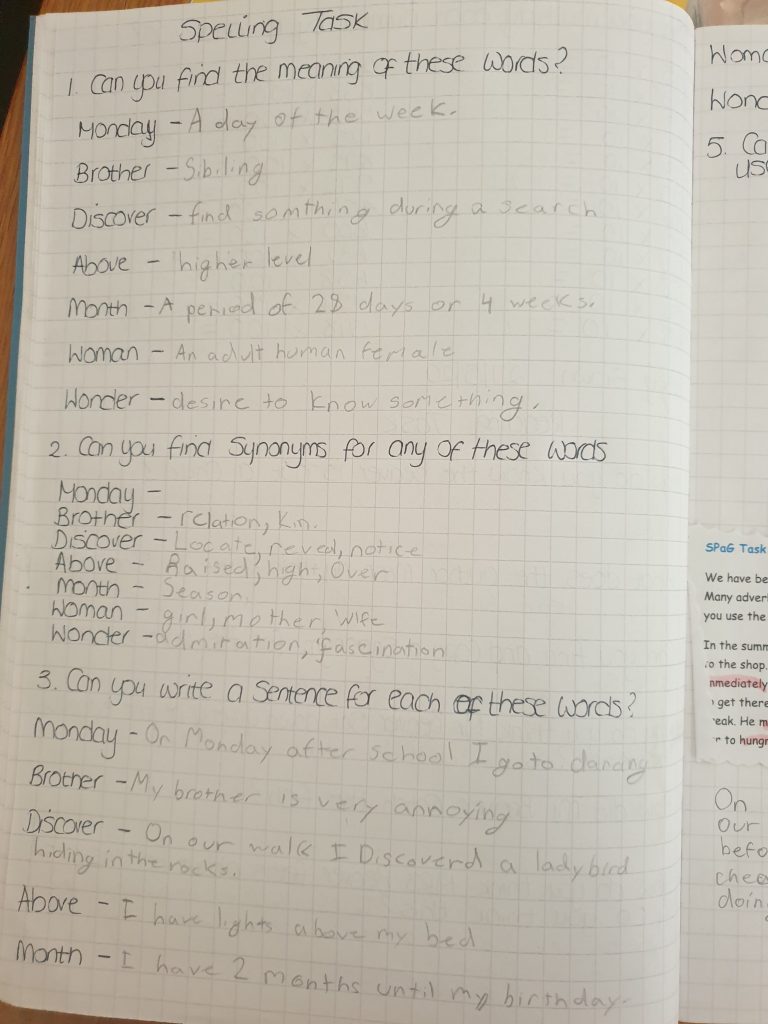 Spelling Task
1. Can you find the meaning of these words?
Monday - A day of the week.
Brother - Sibiling
Discover - find somthing during a search
Above - higher level
Month - A period of 28 days or 4 weeks.
Woman - An adult human female
Wonder - desire to know something.
2. Can you find Synonyms for any of these words
Monday -
Brother - relation, Kin.
Discover - Locate, reveal, notice
Above - Raised, high, Over
Month - Season
Woman - girl, mother, wife
Wonder - admiration, fascination
3. Can you write a sentence for each of these words?
Monday - On Monday after school I go to dancing
Brother - My brother is very annoying
Discover - On our walk I Discoverd a ladybird
hiding in the rocks.
Above - I have lights above my bed
Month - I have 2 months until my birthday.
5. Ca
SPaG Task
We have be
Many adver
you use the
In the summ
to the shop.
mmediately
get there
eak. He m
r to hungr
On
our
befo
chee
doin